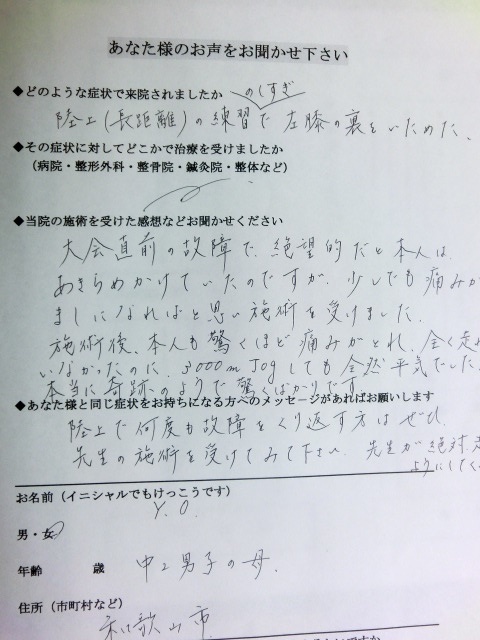 あなた様のお声をお聞かせ下さい
◆どのような症状で来院されましたか
のしすぎ
陸上(長距離)の練習で左膝の裏をいためた、
◆その症状に対してどこかで治療を受けましたか
(病院・整形外科・整骨院・鍼灸院・整体など)
◆当院の施術を受けた感想などお聞かせください
大会直前の故障で、絶望的だと本人は、
あきらめかけていたのですが、少しでも痛みが
ましになればと思い施術を受けました。
施術後、本人も驚くほど痛みがとれ、全く走れ
いなかったのに、3000m Jogしても全然平気でした。
本当に奇跡のようで驚くばかりです。
◆あなた様と同じ症状をお持ちになる方へのメッセージがあればお願いします
陸上で何度も故障をくり返す方はぜひ、
先生の施術を受けてみて下さい。先生が絶対走
ようにしてく
お名前(イニシャルでもけっこうです)
Y.O.
男・女
年齢 歳 中2男子の母.
住所(市町村など)
和歌山市